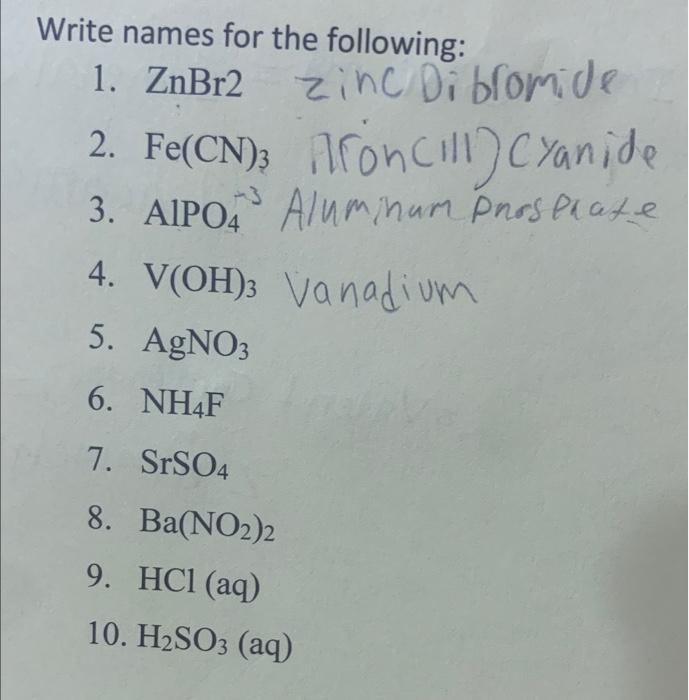 Write names for the following:
1. ZnBr2 zinc Dibromide
2. Fe(CN)₃ Iron(III) Cyanide
3. AlPO₄⁻³ Aluminum Phosphate
4. V(OH)₃ Vanadium
5. AgNO₃
6. NH₄F
7. SrSO₄
8. Ba(NO₂)₂
9. HCl (aq)
10. H₂SO₃ (aq)